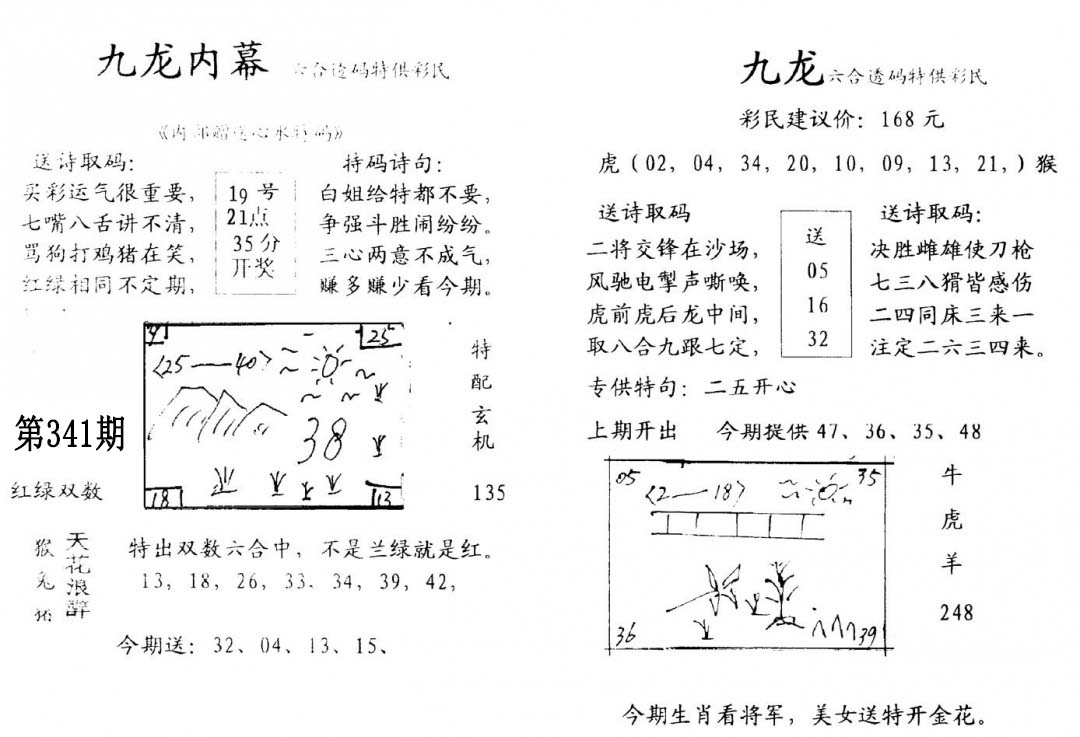 九龙内幕 六合透码特供彩民
《内部赠送心水特码》
送诗取码:
买彩运气很重要，
七嘴八舌讲不清，
骂狗打鸡猪在笑，
红绿相同不定期，
19号
21点
35分
开奖
特码诗句:
白姐给特都不要，
争强斗胜闹纷纷。
三心两意不成气，
赚多赚少看今期。
第341期
25
<25—40>
38
18
13
特配玄机
135
红绿双数
猴兔猪
天花浪群
特出双数六合中，不是兰绿就是红。
13，18，26，33、34，39，42，
今期送：32、04、13、15、
九龙 六合透码特供彩民
彩民建议价：168元
虎（02，04，34，20，10，09，13，21，）猴
送诗取码
二将交锋在沙场，
风驰电掣声嘶唤，
虎前虎后龙中间，
取八合九跟七定，
送
05
16
32
送诗取码:
决胜雌雄使刀枪
七三八猾皆感伤
二四同床三来一
注定二六三四来。
专供特句：二五开心
上期开出 今期提供47、36、35、48
05
<2—18>
35
36
39
牛
虎
羊
248
今期生肖看将军，美女送特开金花。